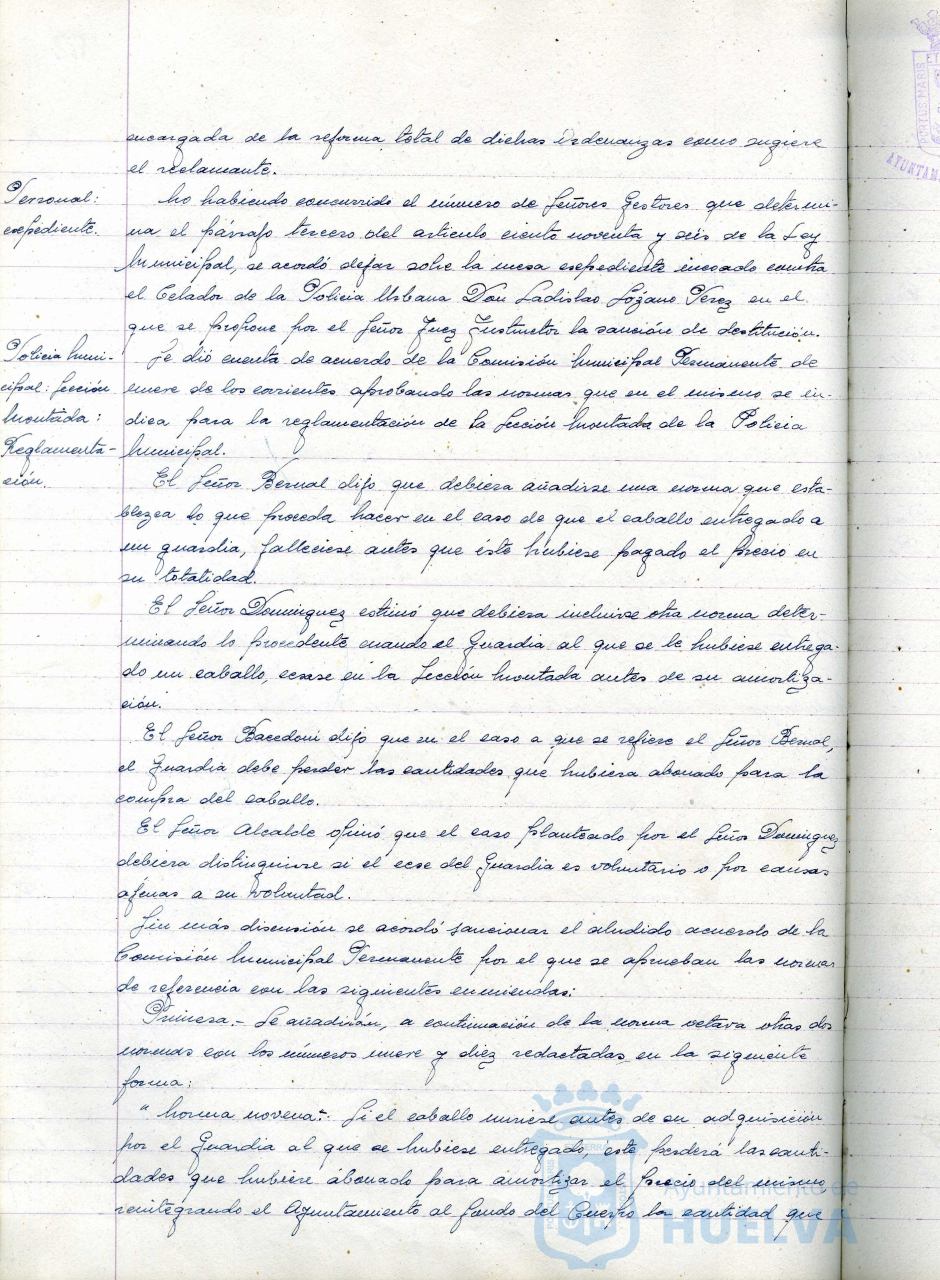 encargada de la reforma total de dichas Ordenanzas como sugiere
el reclamante.
Personal:
expediente.
No habiendo concurrido el número de Señores Gestores que determi-
na el párrafo tercero del articulo ciento noventa y seis de la Ley
Municipal, se acordó dejar sobre la mesa expediente incoado contra
el Celador de la Policia Urbana Don Ladislao Lozano Perez en el
que se propone por el Señor Juez Instructor la sanción de destitución.
Policia Muni-
cipal: Sección
Montada:
Reglamenta-
ción.
Se dió cuenta de acuerdo de la Comisión Municipal Permanente de
nueve de los corrientes aprobando las normas que en el mismo se in-
dica para la reglamentación de la Sección Montada de la Policia
Municipal.
El Señor Bernal dijo que debiera añadirse una norma que esta-
blezca lo que proceda hacer en el caso de que el caballo entregado a
un guardia, falleciese antes que éste hubiese pagado el precio en
su totalidad.
El Señor Dominguez estimó que debiera incluirse otra norma deter-
minando lo procedente cuando el Guardia al que se le hubiese entrega-
do un caballo, cesase en la Sección Montada antes de su amortiza-
ción.
El Señor Bacedoni dijo que en el caso a que se refiere el Señor Bernal,
el Guardia debe perder las cantidades que hubiera abonado para la
compra del caballo.
El Señor Alcalde opinó que el caso planteado por el Señor Dominguez
debiera distinguirse si el cese del Guardia es voluntario o por causas
ajenas a su voluntad.
Sin más discusión se acordó sancionar el aludido acuerdo de la
Comisión Municipal Permanente por el que se aprueban las normas
de referencia con las siguientes enmiendas:
Primera.- Se añadirán, a continuación de la norma octava otras dos
normas con los números nueve y diez redactadas en la siguiente
forma:
"Norma novena".- Si el caballo muriese antes de su adquisición
por el Guardia al que se hubiese entregado, éste perderá las canti-
dades que hubiere abonado para amortizar el precio del mismo
reintegrando el Ayuntamiento al fondo del Cuerpo la cantidad que
Ayuntamiento de
HUELVA